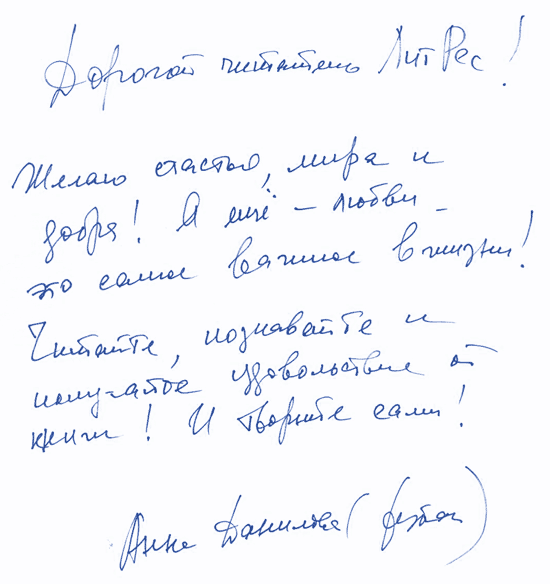 Дорогой читатель ЛитРес!
Желаю счастья, мира и
добра! А ещё – любви –
это самое важное в жизни!
Читайте, познавайте и
получайте удовольствие от
книги! И творите сами!
Анна Данилова (